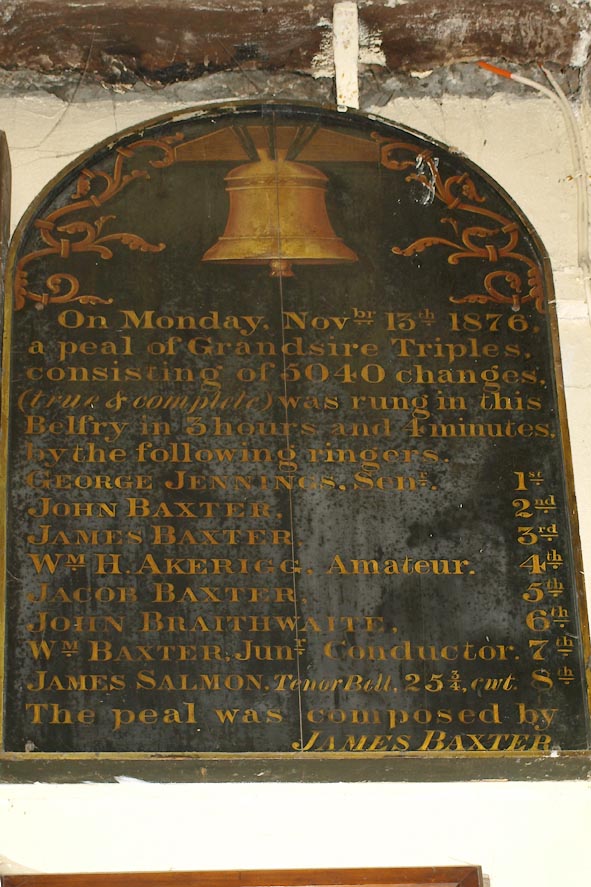 On Monday, Novbr 13th 1876,
a peal of Grandsire Triples,
consisting of 5040 changes,
(true & complete) was rung in this
Belfry in 3 hours and 4 minutes,
by the following ringers.
GEORGE JENNINGS, Senr. 1st
JOHN BAXTER, 2nd
JAMES BAXTER, 3rd
WM H. AKERIGG, Amateur. 4th
JACOB BAXTER, 5th
JOHN BRAITHWAITE, 6th
WM BAXTER, Junr Conductor. 7th
JAMES SALMON. Tenor Bell, 25 3/4, cwt. 8th
The peal was composed by
JAMES BAXTER